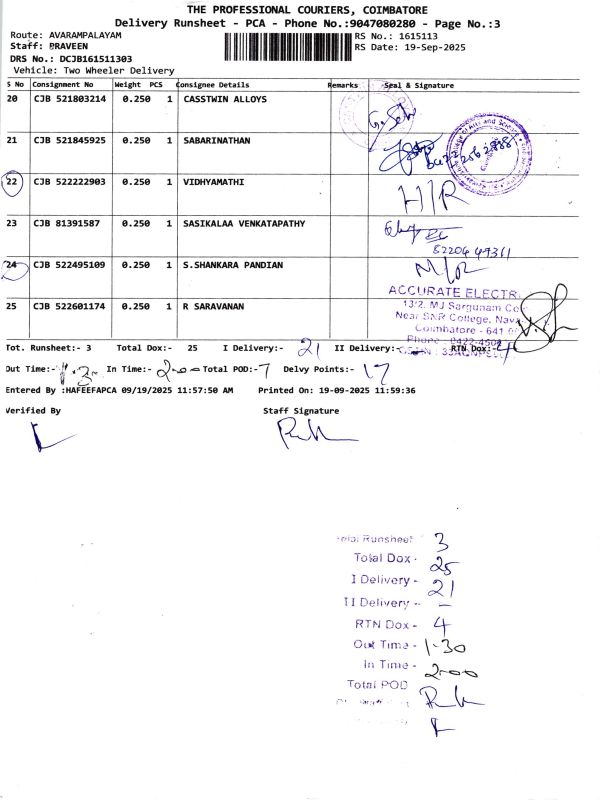 THE PROFESSIONAL COURIERS, COIMBATORE
Delivery Runsheet - PCA - Phone No.:9047080280 - Page No.:3
Route: AVARAMPALAYAM
RS No.: 1615113
Staff: PRAVEEN
RS Date: 19-Sep-2025
DRS No.: DCJB161511303
Vehicle: Two Wheeler Delivery
S No Consignment No Weight PCS Consignee Details Remarks Seal & Signature
20 CJB 521803214 0.250 1 CASSTWIN ALLOYS
21 CJB 521845925 0.250 1 SABARINATHAN
22 CJB 522222903 0.250 1 VIDHYAMATHI H/R
23 CJB 81391587 0.250 1 SASIKALAA VENKATAPATHY
24 CJB 522495109 0.250 1 S.SHANKARA PANDIAN
ACCURATE ELECTR
13/2, MJ Sargunam Co
Near SNR College, Nava
Coimbatore - 641 0
25 CJB 522601174 0.250 1 R SARAVANAN
Phone : 0422-450
Tot. Runsheet:- 3 Total Dox:- 25 I Delivery:- 21 II Delivery:- RTN Dox:- 4
Out Time:- 1.30 In Time:- 2-00 Total POD:- 7 Delvy Points:- 17
Entered By :HAFEEFAPCA 09/19/2025 11:57:50 AM Printed On: 19-09-2025 11:59:36
Verified By Staff Signature
Runsheet 3
Total Dox - 25
I Delivery - 21
II Delivery - -
RTN Dox - 4
Out Time - 1-30
In Time - 2-00
Total POD